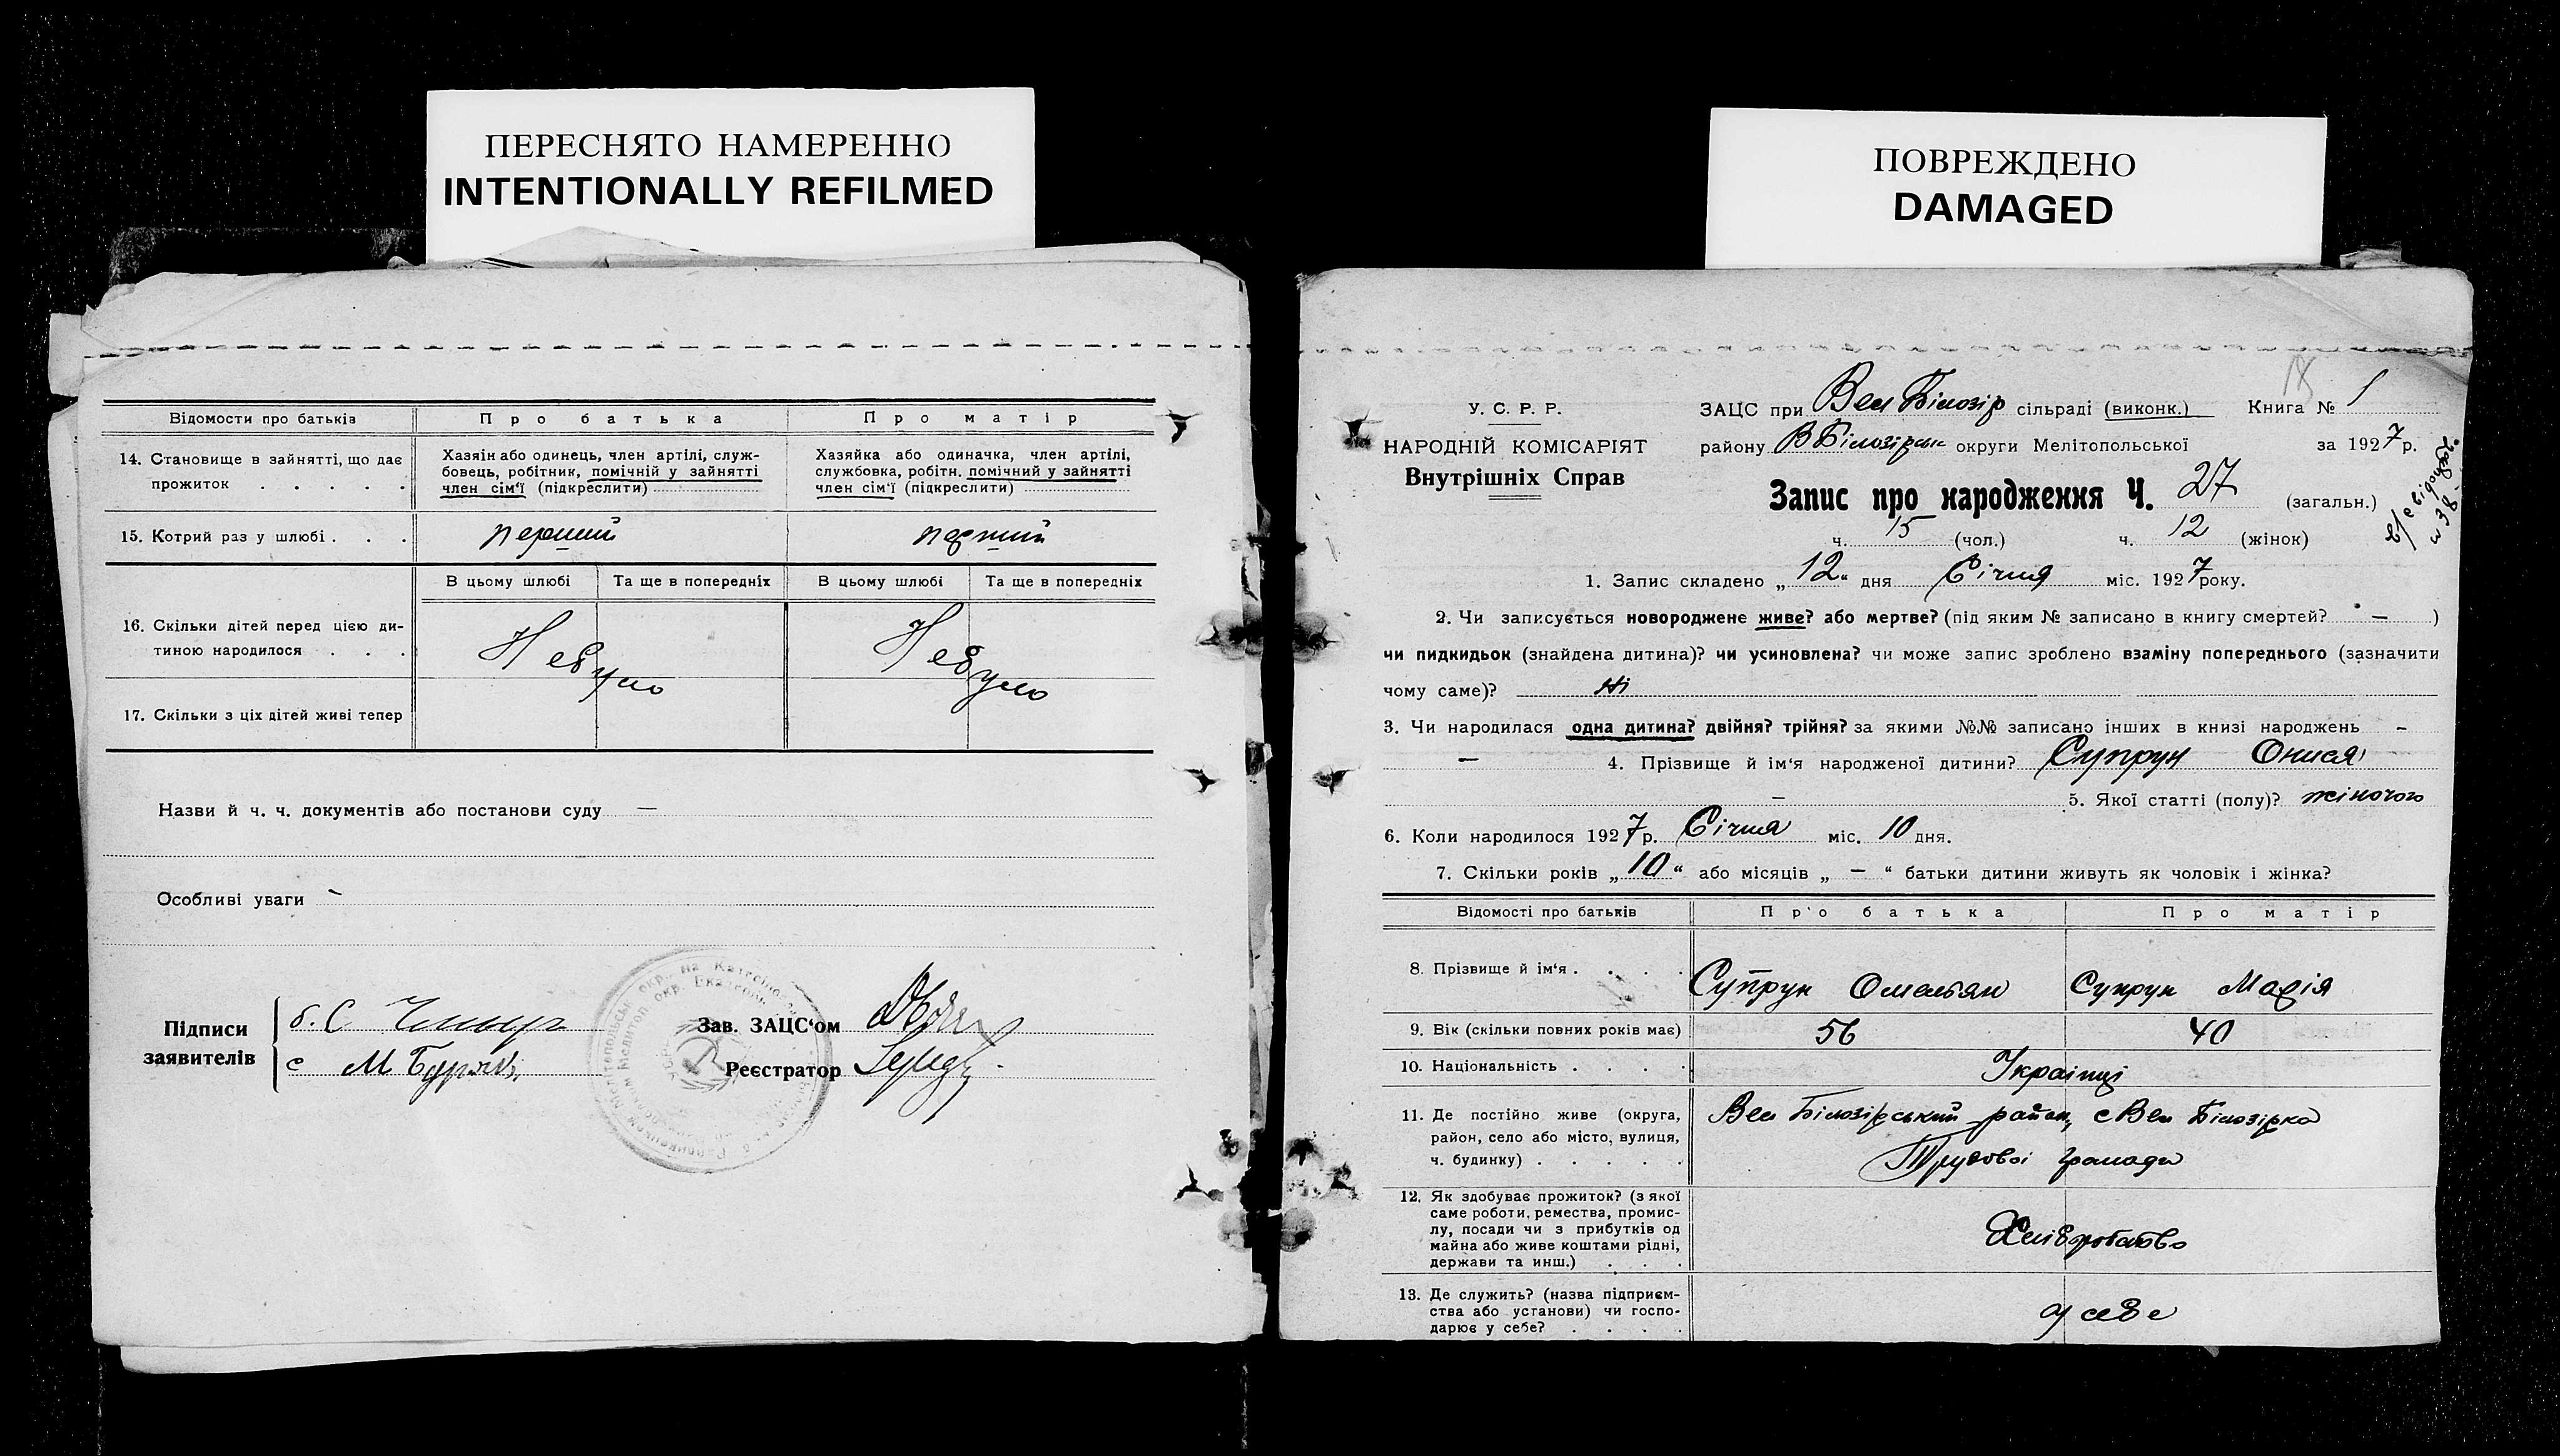 ПЕРЕСНЯТО НАМЕРЕННО
INTENTIONALLY REFILMED
Відомости про батьків
Про батька
Про матір
14. Становище в зайнятті, що дає прожиток . . . . .
Хазяін або одинець, член артілі, служ-
бовець, робітник, помічній у зайнятті
член сім'ї (підкреслити)
Хазяйка або одиначка, член артілі,
службовка, робітн. помічний у зайнятті
член сім'ї (підкреслити)
15. Котрий раз у шлюбі . . .
перший
перший
В цьому шлюбі
Та ще в попередніх
В цьому шлюбі
Та ще в попередніх
16. Скільки дітей перед цією ди-
тиною народилося . . .
Небуло
Небуло
17. Скільки з ціх дітей живі тепер
Назви й ч. ч. документів або постанови суду —
Особливі уваги -
Підписи
заявителів
б. С
с М. Буряк
Зав. ЗАЦС'ом
Реєстратор
ПОВРЕЖДЕНО
DAMAGED
У. С. Р. Р.
НАРОДНІЙ КОМІСАРІЯТ
Внутрішніх Справ
ЗАЦС при Вел Білозір сільраді (виконк.) Книга № 1
району ВБілозірськ округи Мелітопольської за 1927 р.
Запис про народження Ч. 27 (загальн.)
ч. 15 (чол.) ч. 12 (жінок)
1. Запис складено „12" дня Січня міс. 1927 року.
2. Чи записується новороджене живе? або мертве? (під яким № записано в книгу смертей? — )
чи пидкидьок (знайдена дитина)? чи усиновлена? чи може запис зроблено взаміну попереднього (зазначити
чому саме)? Ні
3. Чи народилася одна дитина? двійня? трійня? за якими №№ записано інших в книзі народжень -
— 4. Прізвище й ім'я народженої дитини? Супрун Онися
— 5. Якої статті (полу)? жіночого
6. Коли народилося 1927 р. Січня міс. 10 дня.
7. Скільки років „10" або місяців „ — " батьки дитини живуть як чоловік і жінка?
Відомості про батьків
Про батька
Про матір
8. Прізвище й ім'я . . . .
Супрун Омельян
Супрун Марія
9. Вік (скільки повних років має)
56
40
10. Національність . . . .
Українці
11. Де постійно живе (округа,
район, село або місто, вулиця,
ч. будинку) . . . . .
Вел Білозірський район, с Вел Білозірка
Трудової громади
12. Як здобуває прожиток? (з якої
саме роботи, ремества, промис-
лу, посади чи з прибутків од
майна або живе коштами рідні,
держави та инш.) . . .
Хліборобство
13. Де служить? (назва підприєм-
ства або установи) чи госпо-
дарює у себе? . . . .
у себе